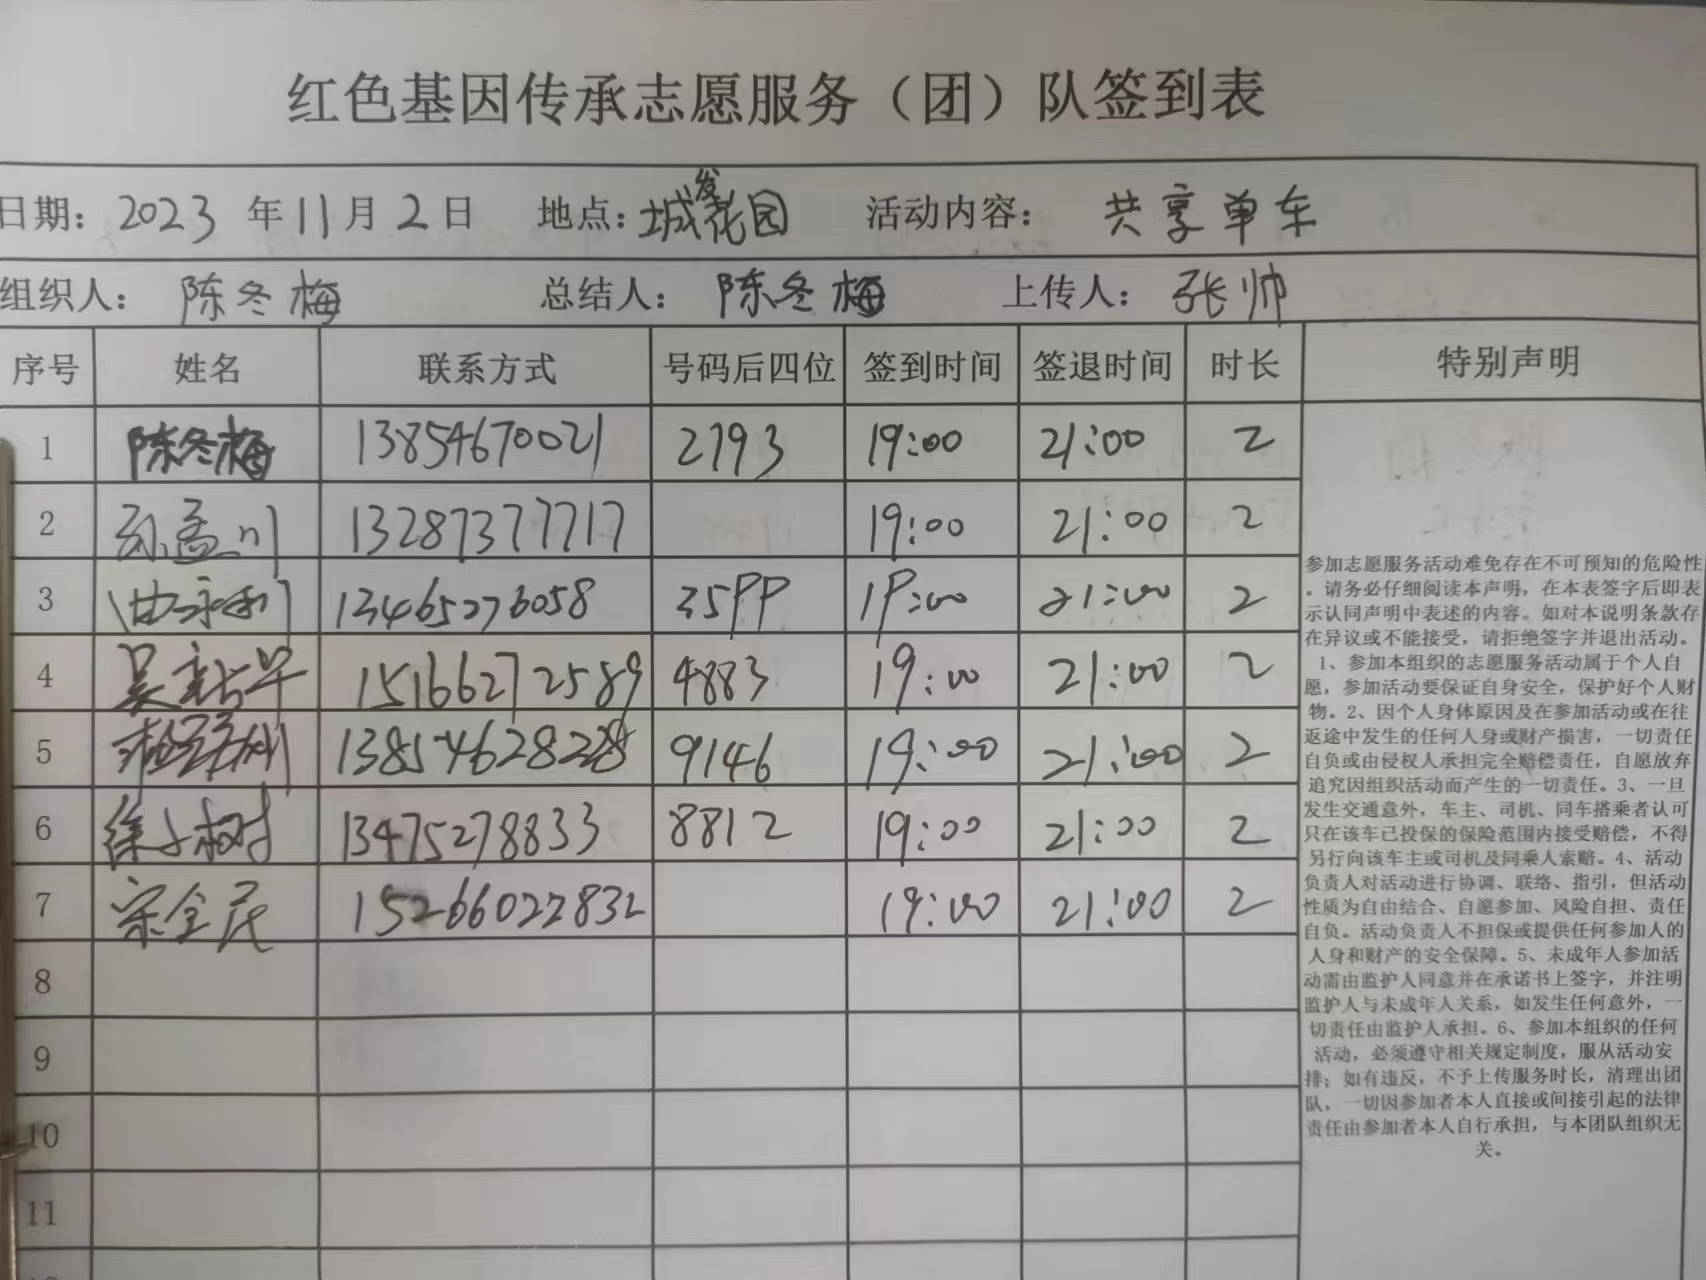 红色基因传承志愿服务（团）队签到表
日期：2023 年 11 月 2 日 地点：城发花园 活动内容： 共享单车
组织人： 陈冬梅 总结人： 陈冬梅 上传人： 张帅
序号 姓名 联系方式 号码后四位 签到时间 签退时间 时长 特别声明
1 陈冬梅 13854670021 2793 19:00 21:00 2
2 孙孟川 13287377717 19:00 21:00 2
3 曲永利 13465276058 3599 19:00 21:00 2
4 15166272589 4883 19:00 21:00 2
5 13854628228 9146 19:00 21:00 2
6 13475278833 8812 19:00 21:00 2
7 宋全民 15266022832 19:00 21:00 2
8
9
10
11
参加志愿服务活动难免存在不可预知的危险性
。请务必仔细阅读本声明，在本表签字后即表
示认同声明中表述的内容。如对本说明条款存
在异议或不能接受，请拒绝签字并退出活动。
1、参加本组织的志愿服务活动属于个人自
愿，参加活动要保证自身安全，保护好个人财
物。2、因个人身体原因及在参加活动或在往
返途中发生的任何人身或财产损害，一切责任
自负或由侵权人承担完全赔偿责任，自愿放弃
追究因组织活动而产生的一切责任。3、一旦
发生交通意外，车主、司机、同车搭乘者认可
只在该车已投保的保险范围内接受赔偿，不得
另行向该车主或司机及同乘人索赔。4、活动
负责人对活动进行协调、联络、指引，但活动
性质为自由结合、自愿参加、风险自担、责任
自负。活动负责人不担保或提供任何参加人的
人身和财产的安全保障。5、未成年人参加活
动需由监护人同意并在承诺书上签字，并注明
监护人与未成年人关系，如发生任何意外，一
切责任由监护人承担。6、参加本组织的任何
活动，必须遵守相关规定制度，服从活动安
排；如有违反，不予上传服务时长，清理出团
队，一切因参加者本人直接或间接引起的法律
责任由参加者本人自行承担，与本团队组织无
关。